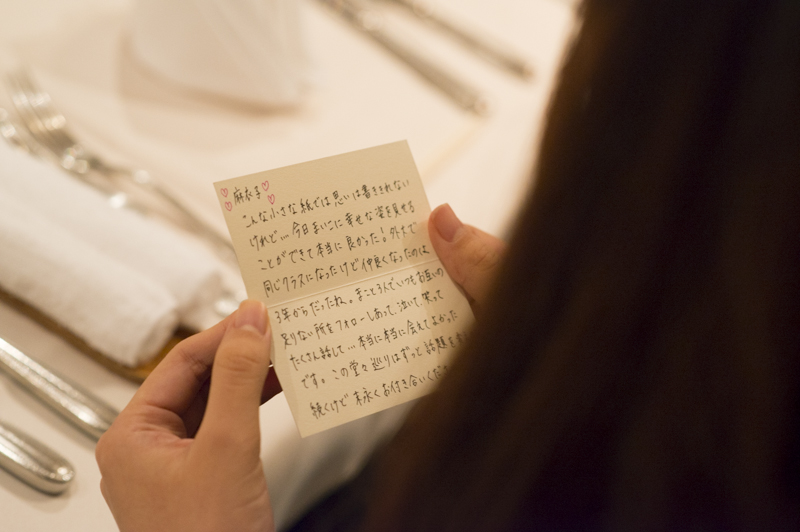 麻衣子
こんな小さな紙では思いは書ききれない
けれど…今日まいこに幸せな姿を見せる
ことができて本当に良かった!外大で
同じクラスになったけど仲良くなったのは
3年からだったね。まこと3人でいつもお互いの
足りない所をフォローしあって、泣いて、笑って
たくさん話して…本当に本当に会えてよかった
です。この堂々巡りはずっと話題を
続くけど末永くお付き合いくださ